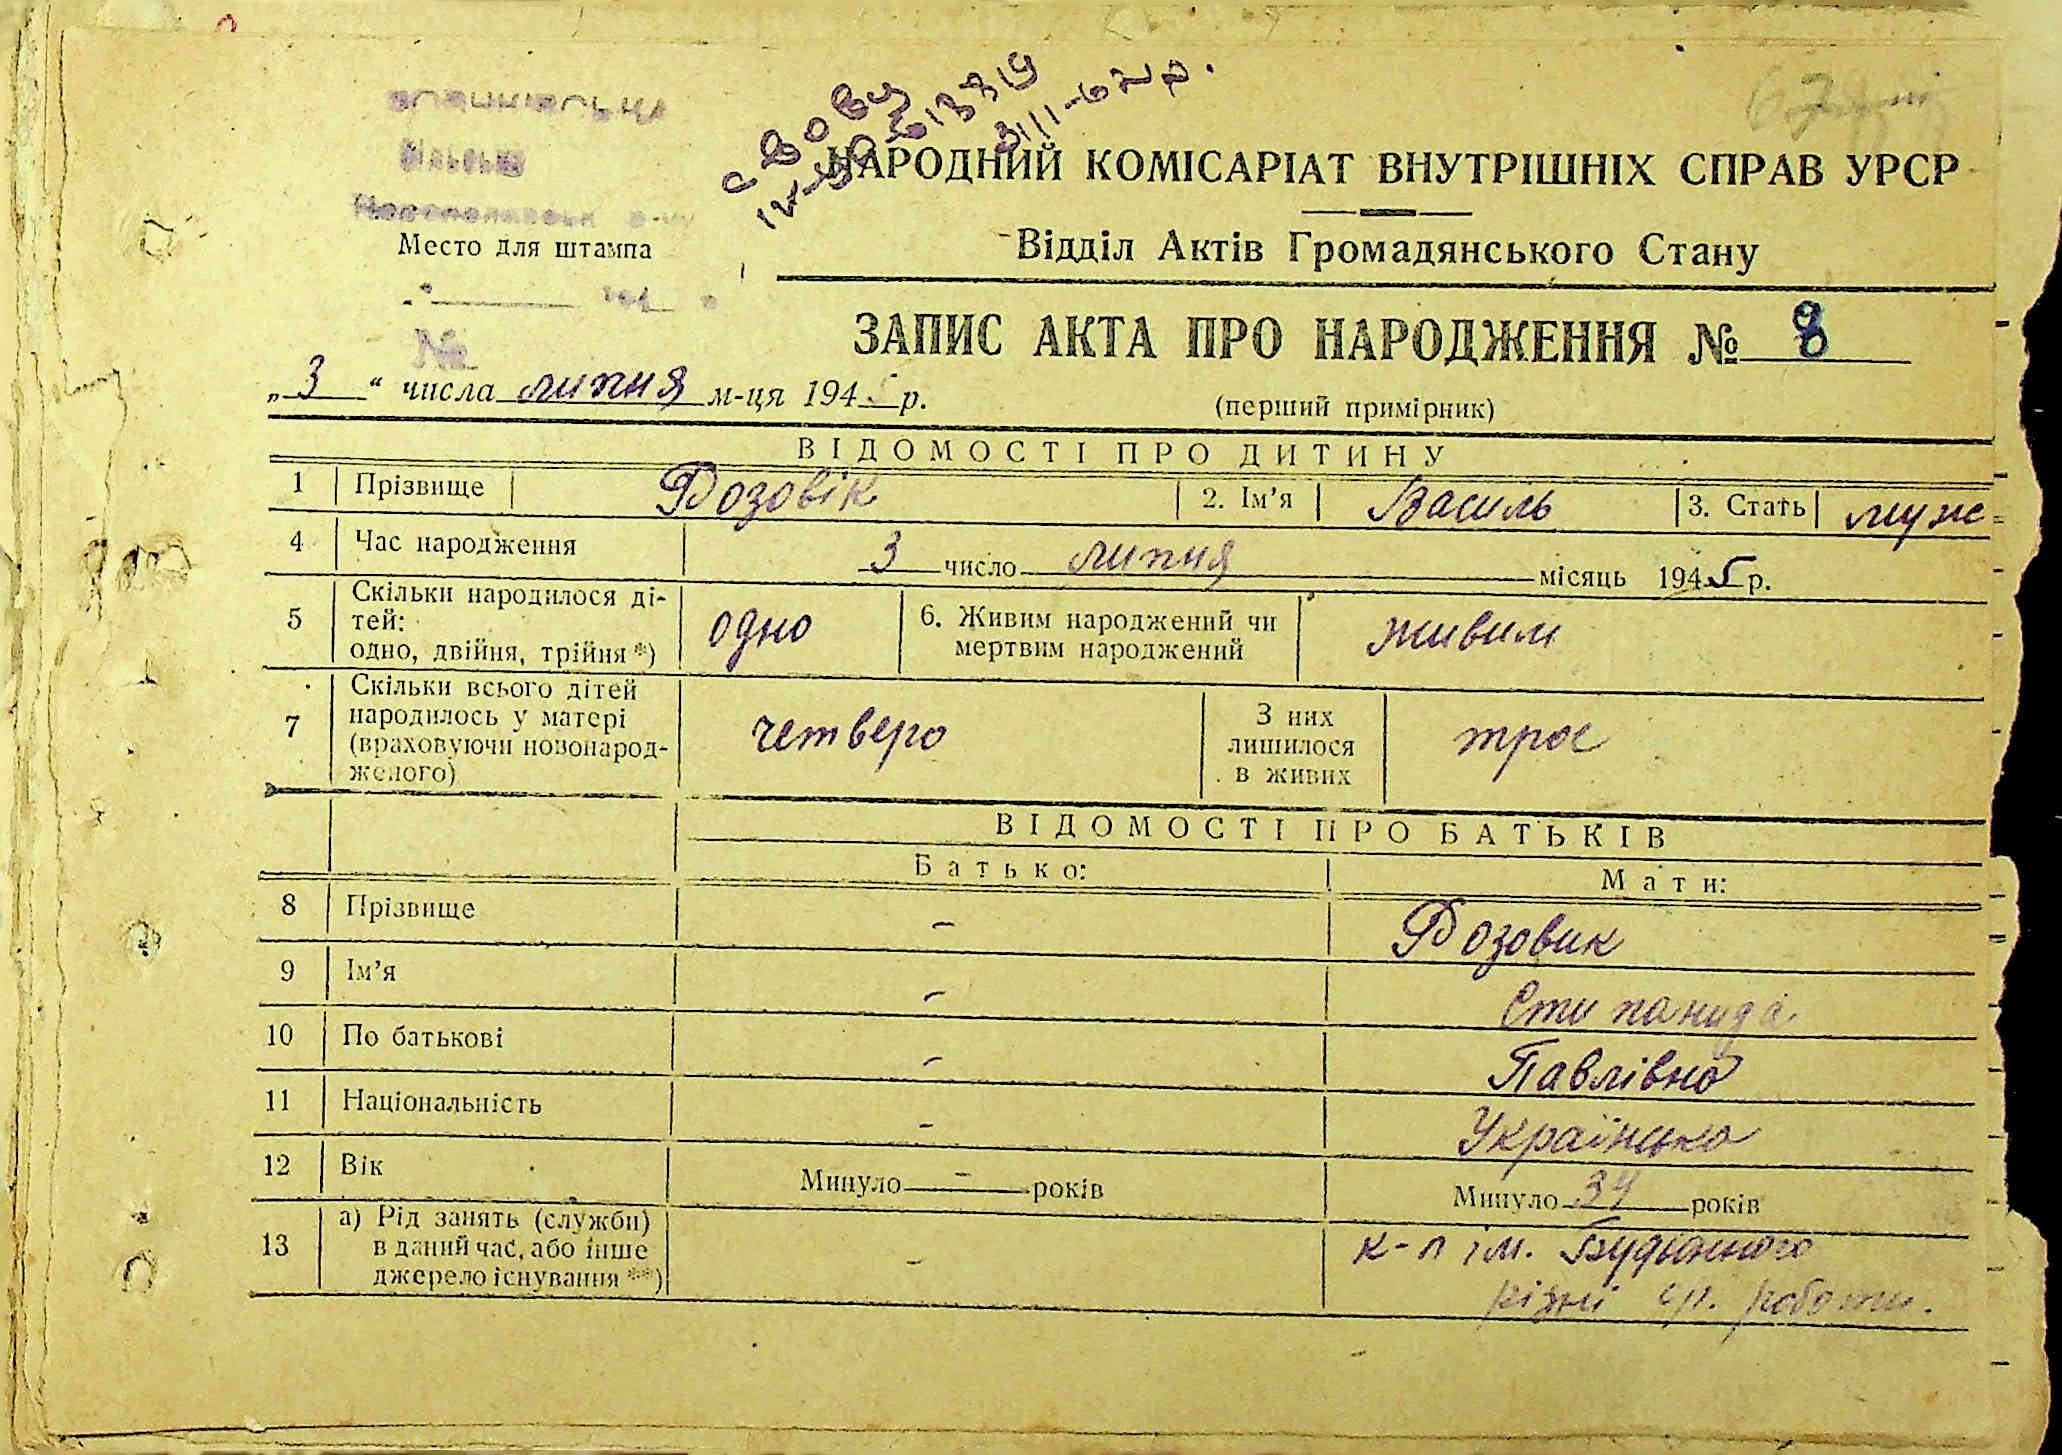 сільська
Место для штампа
№
с. Вову
III-62 р.
НАРОДНИЙ КОМІСАРІАТ ВНУТРІШНІХ СПРАВ УРСР
Відділ Актів Громадянського Стану
ЗАПИС АКТА ПРО НАРОДЖЕННЯ № 8
„3“ числа липня м-ця 1945 р.
(перший примірник)
ВІДОМОСТІ ПРО ДИТИНУ
1 Прізвище Розовік 2. Ім’я Василь 3. Стать муж
4 Час народження 3 число липня місяць 1945 р.
5 Скільки народилося ді-
тей:
одно, двійня, трійня*) одно 6. Живим народжений чи
мертвим народжений живим
7 Скільки всього дітей
народилось у матері
(враховуючи новонарод-
женого) четверо З них
лишилося
в живих троє
ВІДОМОСТІ ПРО БАТЬКІВ
Батько: Мати:
8 Прізвище - Розовик
9 Ім’я - Стипанида
10 По батькові - Павлівна
11 Національність - Українська
12 Вік Минуло - років Минуло 34 років
13 а) Рід занять (служби)
в даний час, або інше
джерело існування**) - к-п ім. Будьонного
різні с/г. роботи.